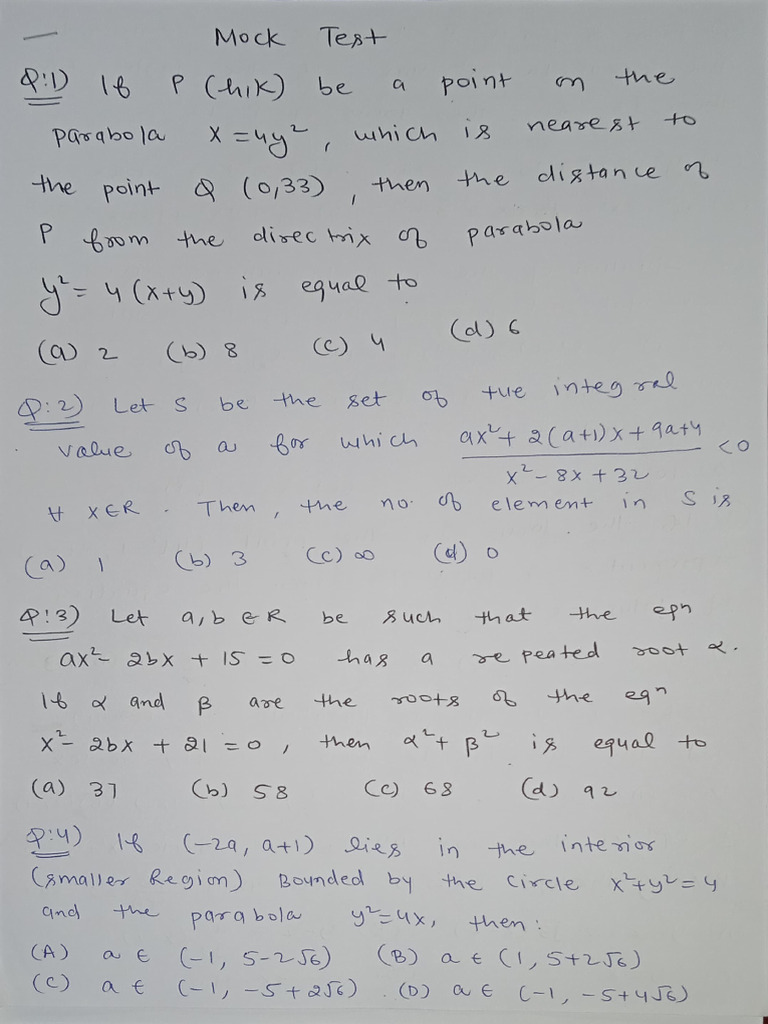 Mock Test
Q:1) If P (h,k) be a point on the
parabola x = 4y², which is nearest to
the point Q (0,33), then the distance of
P from the directrix of parabola
y² = 4(x+y) is equal to
(a) 2 (b) 8 (c) 4 (d) 6
Q:2) Let S be the set of +ve integral
value of a for which ax²+2(a+1)x+9a+4 / x²-8x+32 <0
∀ x∈R. Then, the no. of element in S is
(a) 1 (b) 3 (c) ∞ (d) 0
Q:3) Let a,b ∈ R be such that the eqn
ax²- 2bx + 15 = 0 has a repeated root α.
If α and β are the roots of the eqn
x²- 2bx + 21 = 0, then α²+ β² is equal to
(a) 37 (b) 58 (c) 68 (d) 92
Q:4) If (-2a, a+1) lies in the interior
(smaller Region) Bounded by the circle x²+y²=4
and the parabola y²=4x, then:
(A) a ∈ (-1, 5-2√6) (B) a ∈ (1, 5+2√6)
(C) a ∈ (-1, -5+2√6) (D) a ∈ (-1, -5+4√6)